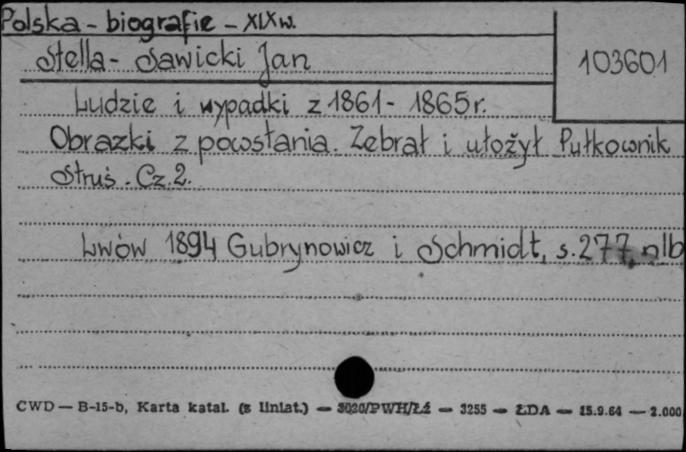 Polska - biografie - XIX w.
Stella - Sawicki Jan
103601
Ludzie i wypadki z 1861 - 1865 r.
Obrazki z powstania. Zebrał i ułożył Pułkownik
Struś. Cz. 2.
Lwów 1894 Gubrynowicz i Schmidt, s. 277, nlb
CWD — B-15-b, Karta katal. (z liniat.) — 3020/PWH/Łź — 3255 — ŁDA — 15.9.64 — 2.000